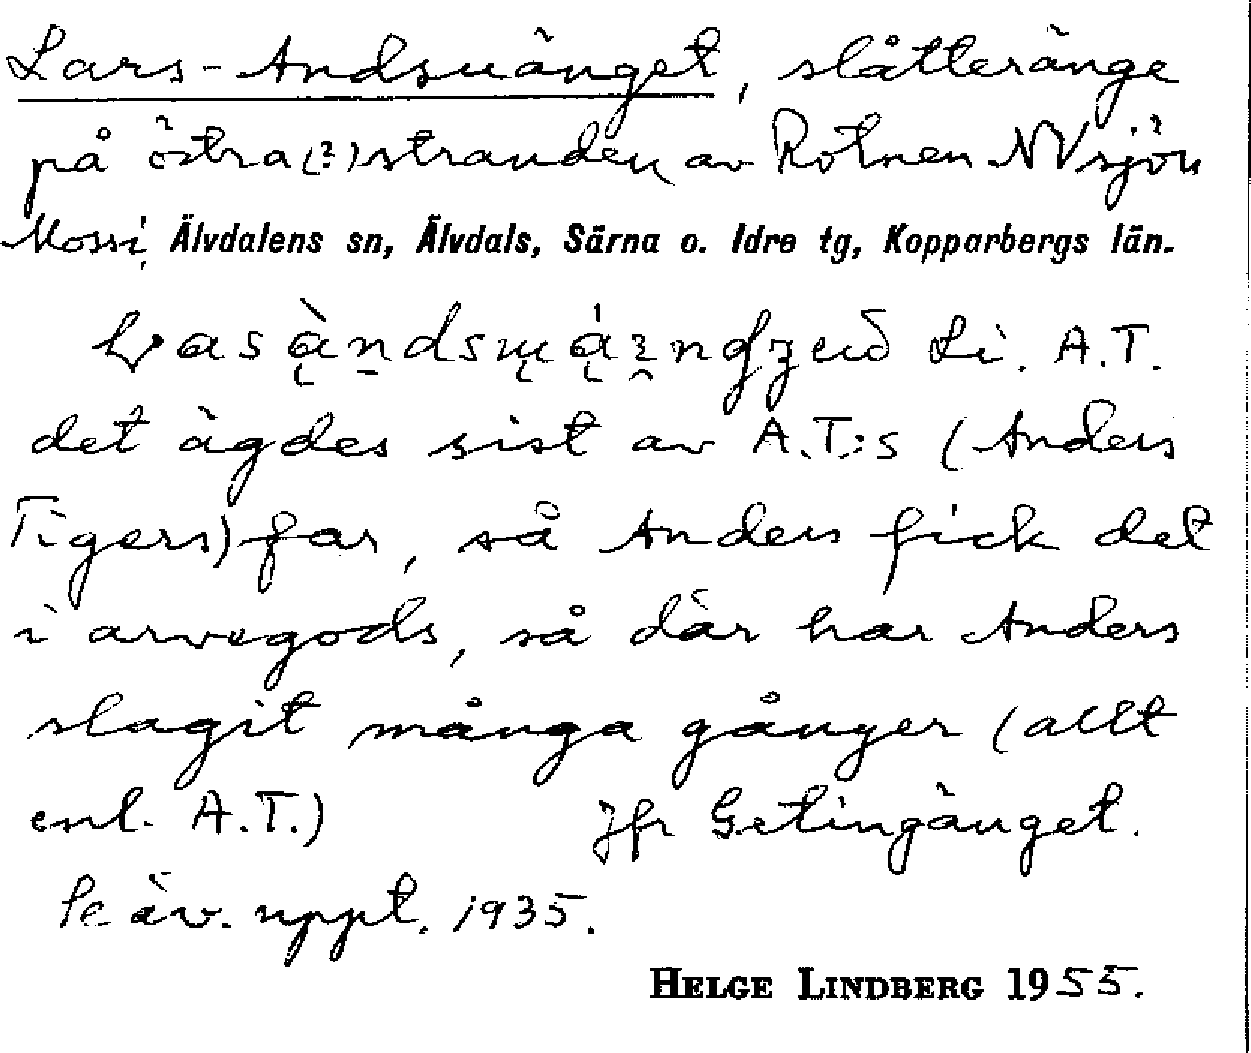 Lars-Andsuänget, slåtteränge
på östra(?)stranden av Rotnen NVsjön
Mossi, Älvdalens sn, Älvdals, Särna o. Idre tg, Kopparbergs län.
Li. A.T.
det ägdes sist av A.T:s (Anders
Tigers) far, så Anders fick det
i arvegods, så där har Anders
slagit många gånger (allt
enl. A.T.) Jfr Getingänget.
Se äv. uppt. 1935.
HELGE LINDBERG 1955.